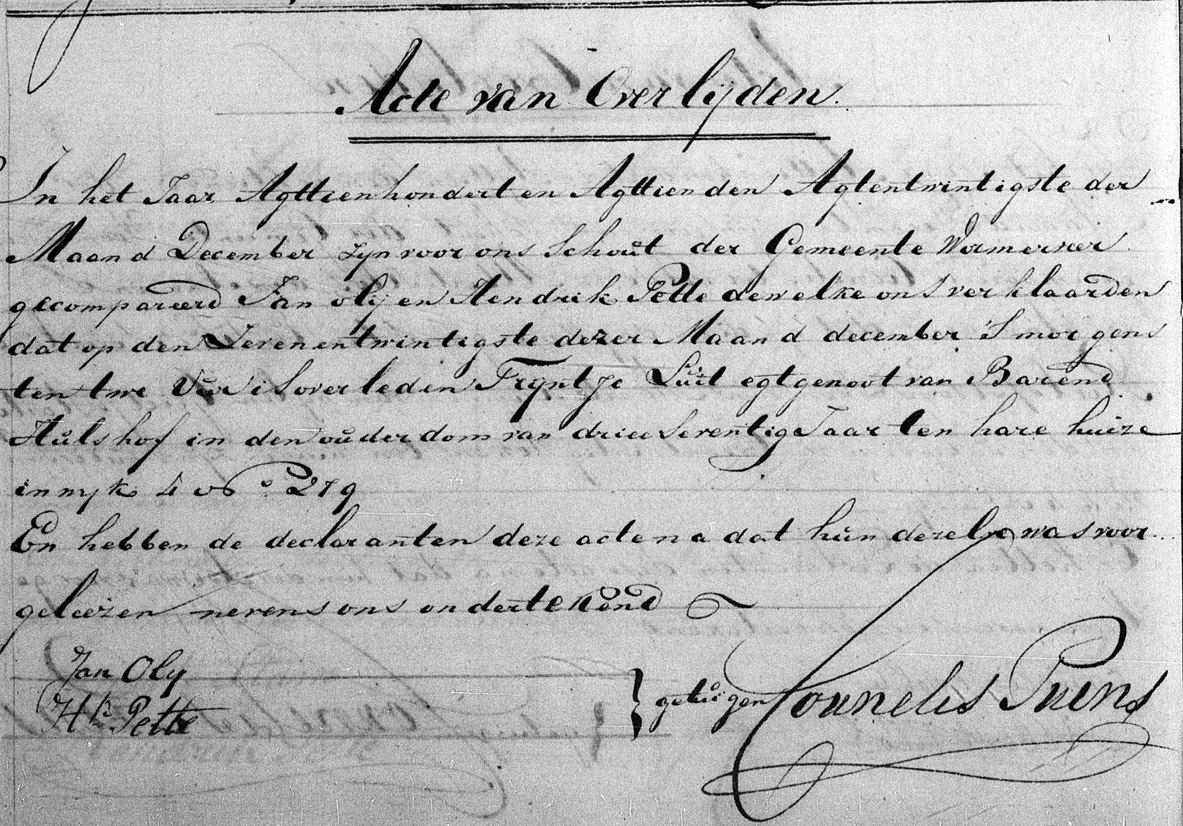 Acte van Overlijden.
In het Jaar Agttienhondert en Agttien den Agtentwintigste der
Maand December zyn voor ons Schout der Gemeente Wormerveer
gecompareerd Jan olij en Hendrik Pette dewelke ons verklaarden
dat op den Zevenentwintigste dezer Maand december 's morgens
ten twe Uur is overleden Trijntje Luit egtgenoot van Barend
Hulshof in den ouderdom van drieeseventig Jaar ten hare huize
in wyk 4 No 279
En hebben de declaranten deze acte na dat hun dezelve was voor
geleezen nevens ons ondertekend
Jan Oly
Hk Pette
} getuigen Cornelis Prins